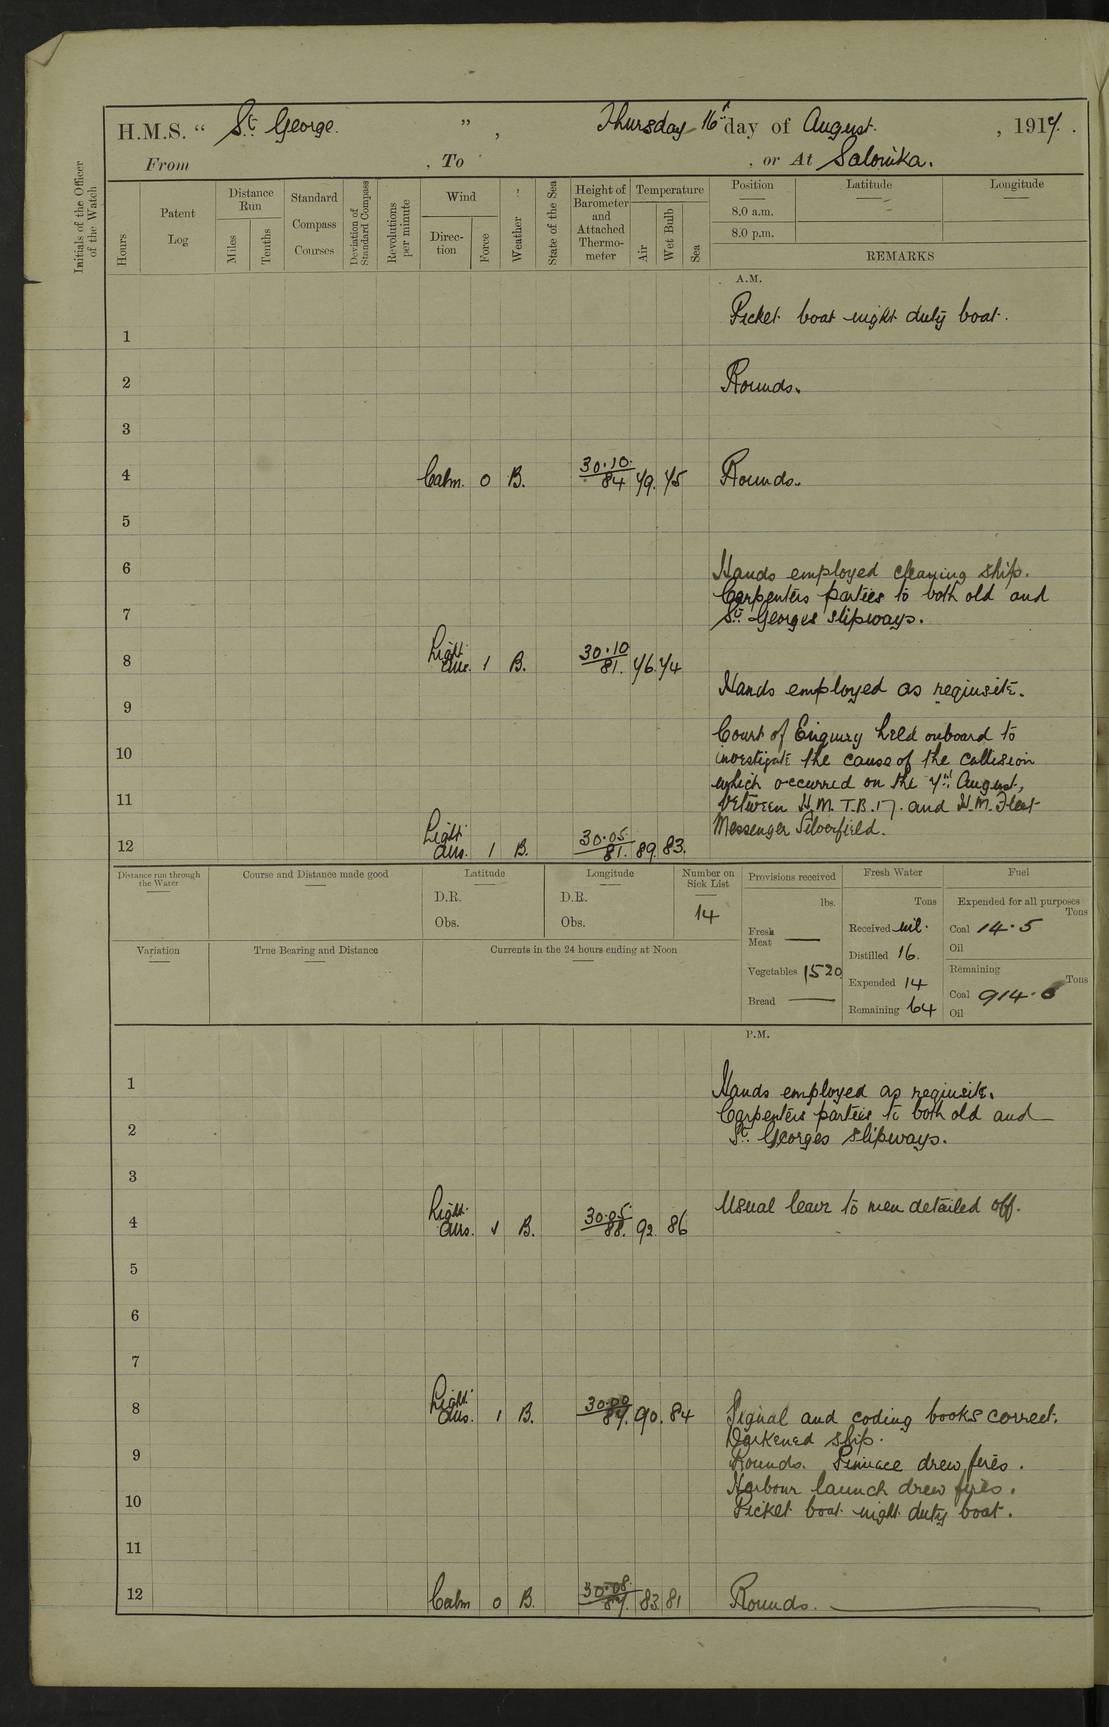 H.M.S. “ St. George. ” , Thursday 16th day of August. , 1917.
From , To , or At Salonika.
Initials of the Officer of the Watch
Hours
Patent Log
Distance Run
Miles
Tenths
Standard Compass Courses
Deviation of Standard Compass
Revolutions per minute
Wind
Direction
Force
Weather
State of the Sea
Height of Barometer and Attached Thermometer
Temperature
Air
Wet Bulb
Sea
Position Latitude Longitude
8.0 a.m.
8.0 p.m.
REMARKS
A.M.
Picket boat night duty boat.
1
2 Rounds.
3
4 Calm. 0 B. 30.10 84 79. 75 Rounds.
5
6 Hands employed cleaning ship.
Carpenters parties to both old and
7 St. Georges slipways.
8 Light airs. 1 B. 30.10 81. 76. 74
Hands employed as requisite.
9
Court of Enquiry held onboard to
10 investigate the cause of the collision
which occurred on the 7th August,
11 between H.M. T.B. 17. and H.M. Fleet
Messenger Silverfield.
12 Light airs. 1 B. 30.05 81. 89. 83.
Distance run through the Water
Course and Distance made good
Latitude
D.R.
Obs.
Longitude
D.R.
Obs.
Number on Sick List
14
Provisions received
lbs.
Fresh Meat —
Vegetables 1520
Bread —
Fresh Water
Tons
Received nil.
Distilled 16.
Expended 14
Remaining 64
Fuel
Expended for all purposes
Tons
Coal 14.5
Oil
Remaining
Tons
Coal 914.
Oil
Variation
True Bearing and Distance
Currents in the 24 hours ending at Noon
P.M.
1 Hands employed as requisite.
Carpenters parties to both old and
2 St. Georges slipways.
3
Usual leave to men detailed off.
4 Light airs. 1 B. 30.05 88. 92. 86
5
6
7
8 Light airs. 1 B. 87. 90. 84 Signal and coding books correct.
Darkened ship.
9 Rounds. Pinnace drew fires.
Harbour launch drew fires.
10 Picket boat night duty boat.
11
12 Calm 0 B. 30.08. 87. 83. 81 Rounds.